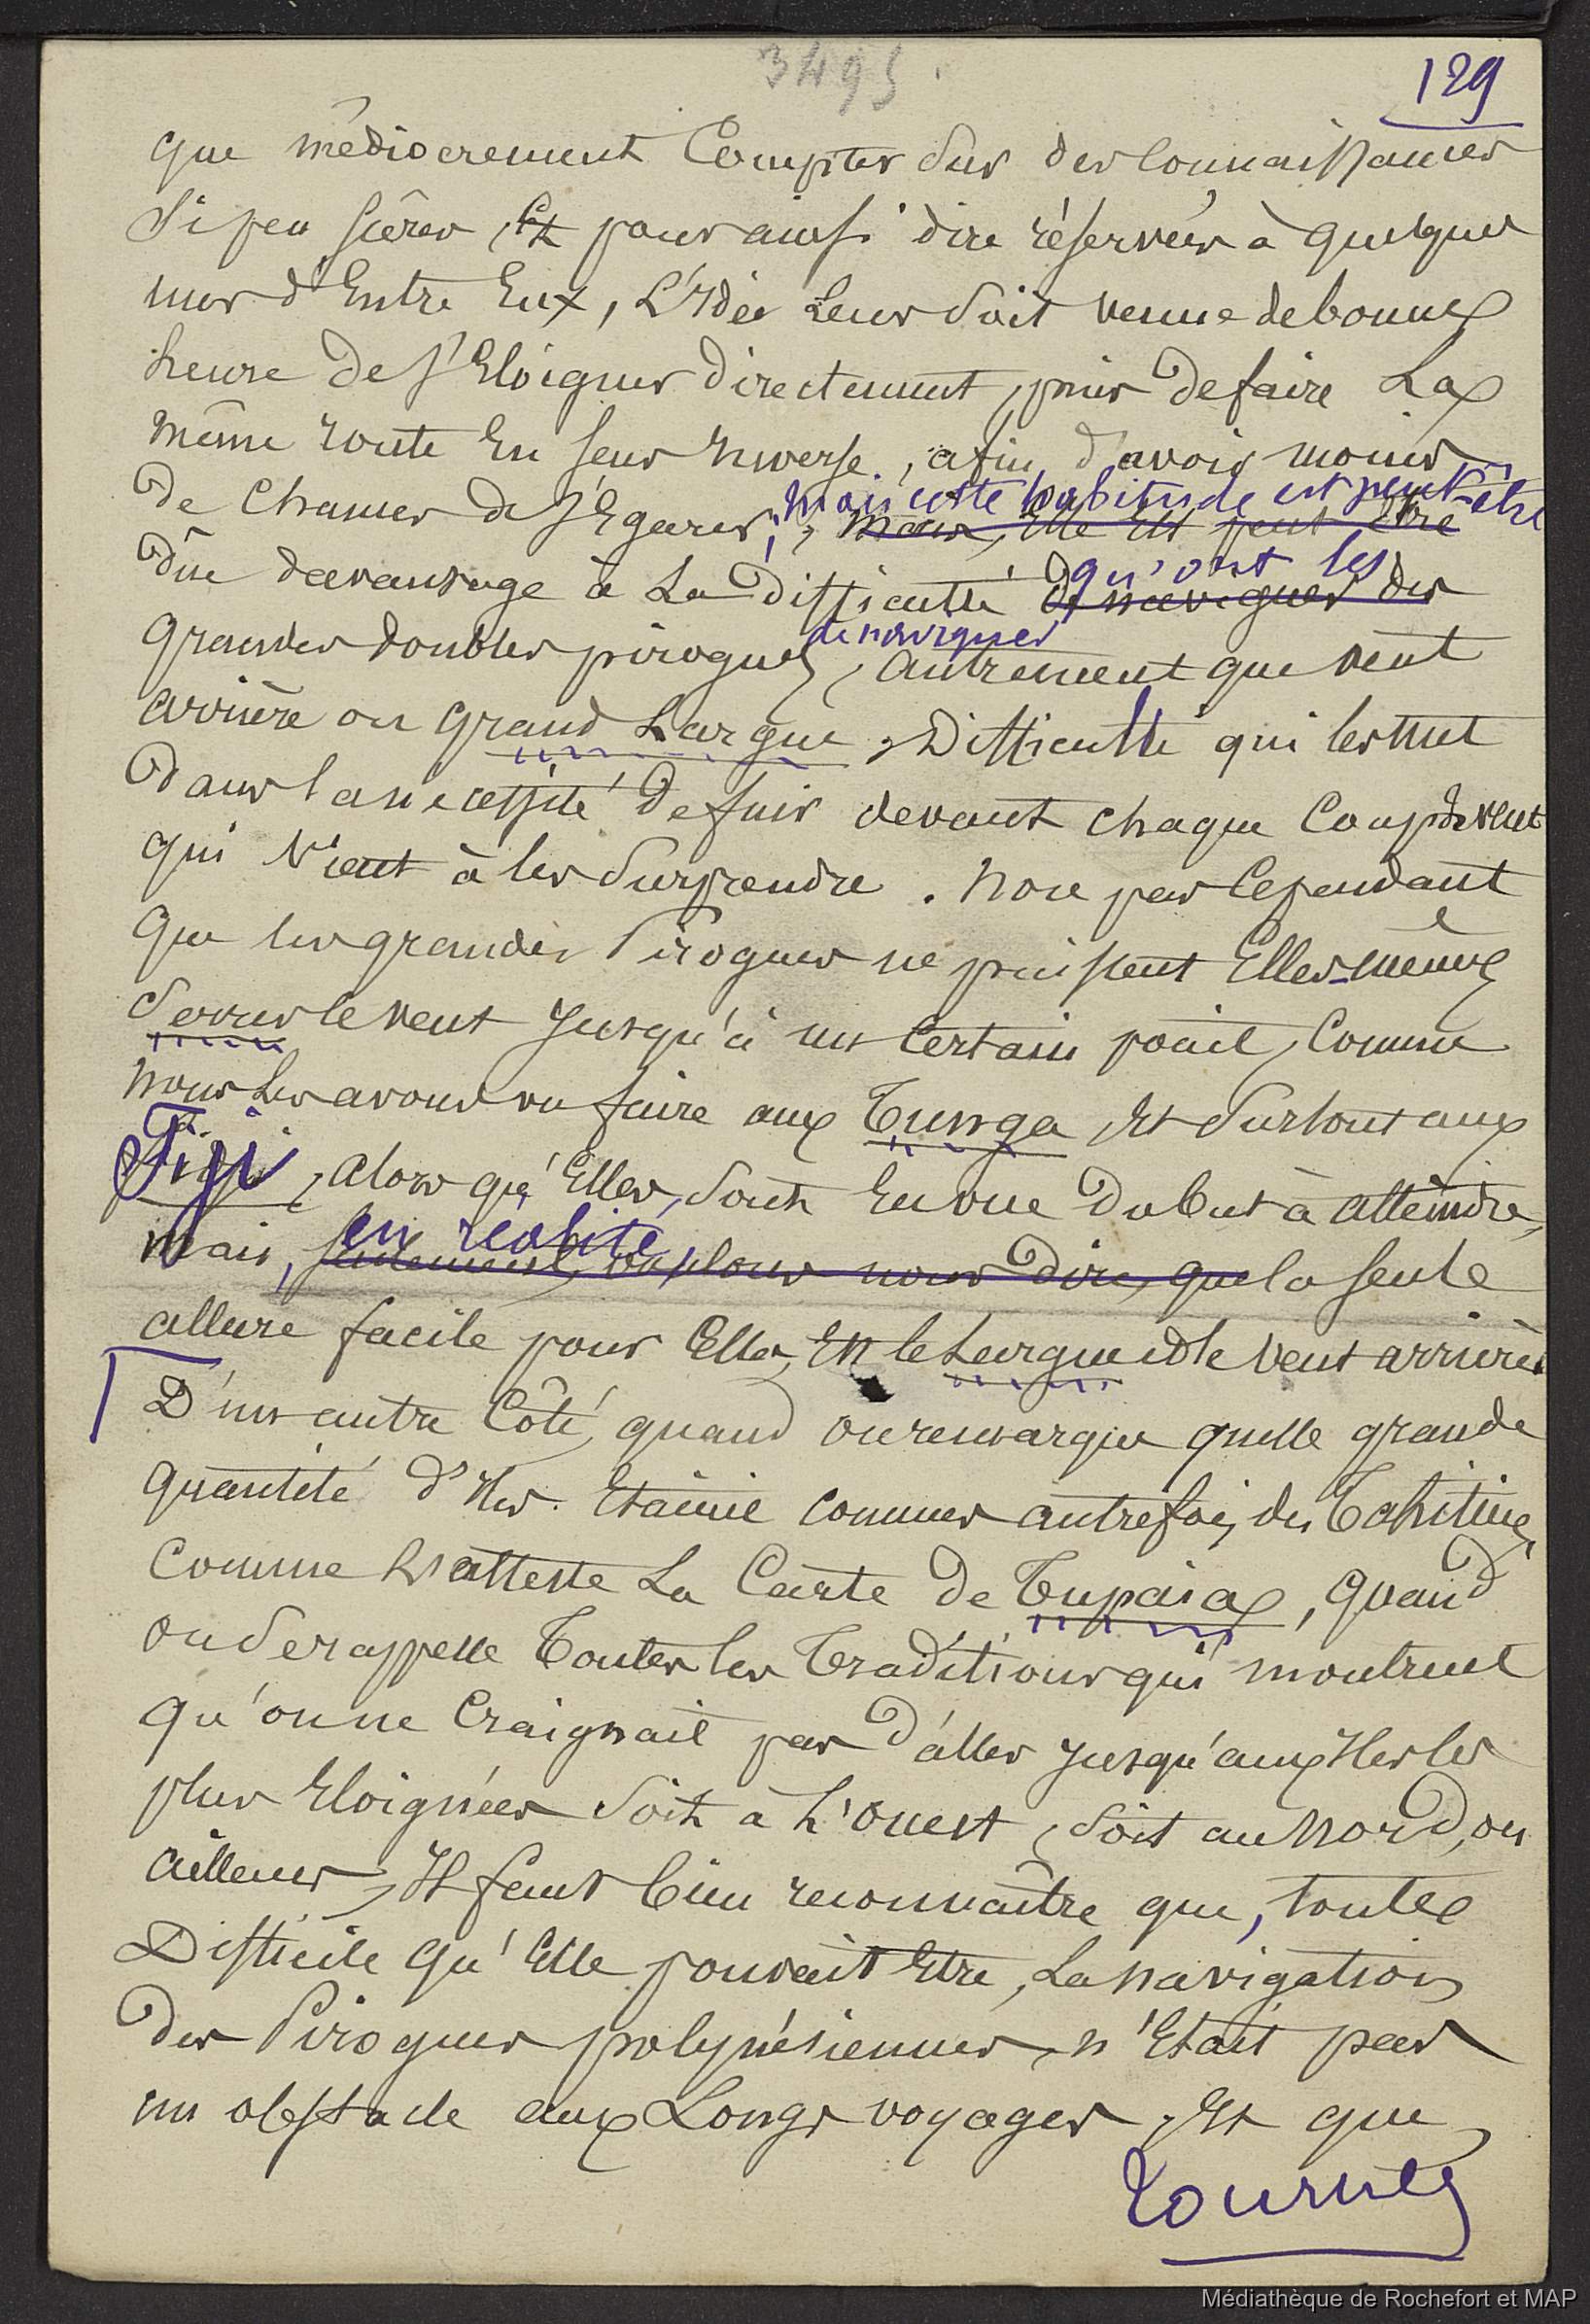 3495.
129
que médiocrement Compter Sur des Connaissances
Si peu sûres, Et pour ainsi dire réservées à quelques
uns d'Entre Eux, L'Idée Leur Soit venue de bonne
heure de s'Eloigner directement, puis de faire La
même route En sens Inverse, afin d'avoir moins
mais cette habitude est peut-être
de Chances de s'Egarer; mais, Elle Est peut être
qu'ont les
dûe davantage à La difficulté de naviguer des
de naviguer
grandes doubles pirogues, autrement que vent
arrière ou grand Largue, Difficulté qui les met
dans la nécessité de fuir devant chaque Coup de vent
qui Vient à les Surprendre. Non pas Cependant
que les grandes Pirogues ne puissent Elles-mêmes
Serrer le vent Jusqu'à un Certain point, Comme
nous Les avons vu faire aux Tunga Et Surtout aux
Fiji, alors qu'Elles, Sont En vue du but à atteindre,
en réalité,
mais, seulement, voulons nous dire, que la seule
allure facile pour Elles, Est le Largue et le vent arrière
D'un autre Côté, quand on remarque quelle grande
quantité d'Iles Etaient connues autrefois, des Tahitiens,
Comme L'atteste La Carte de Tupaia, quand
on Se rappelle Toutes les Traditions qui montrent
qu'on ne Craignait pas d'aller Jusqu'aux Iles les
plus Eloignées Soit à L'Ouest, Soit au Nord, ou
ailleurs, Il faut bien reconnaître que, toute
Difficile qu'Elle pouvait Etre, La navigation
des Pirogues polynésiennes, n'Etait pas
un obstacle aux Longs voyages, Et que
Tournez
Médiathèque de Rochefort et MAP